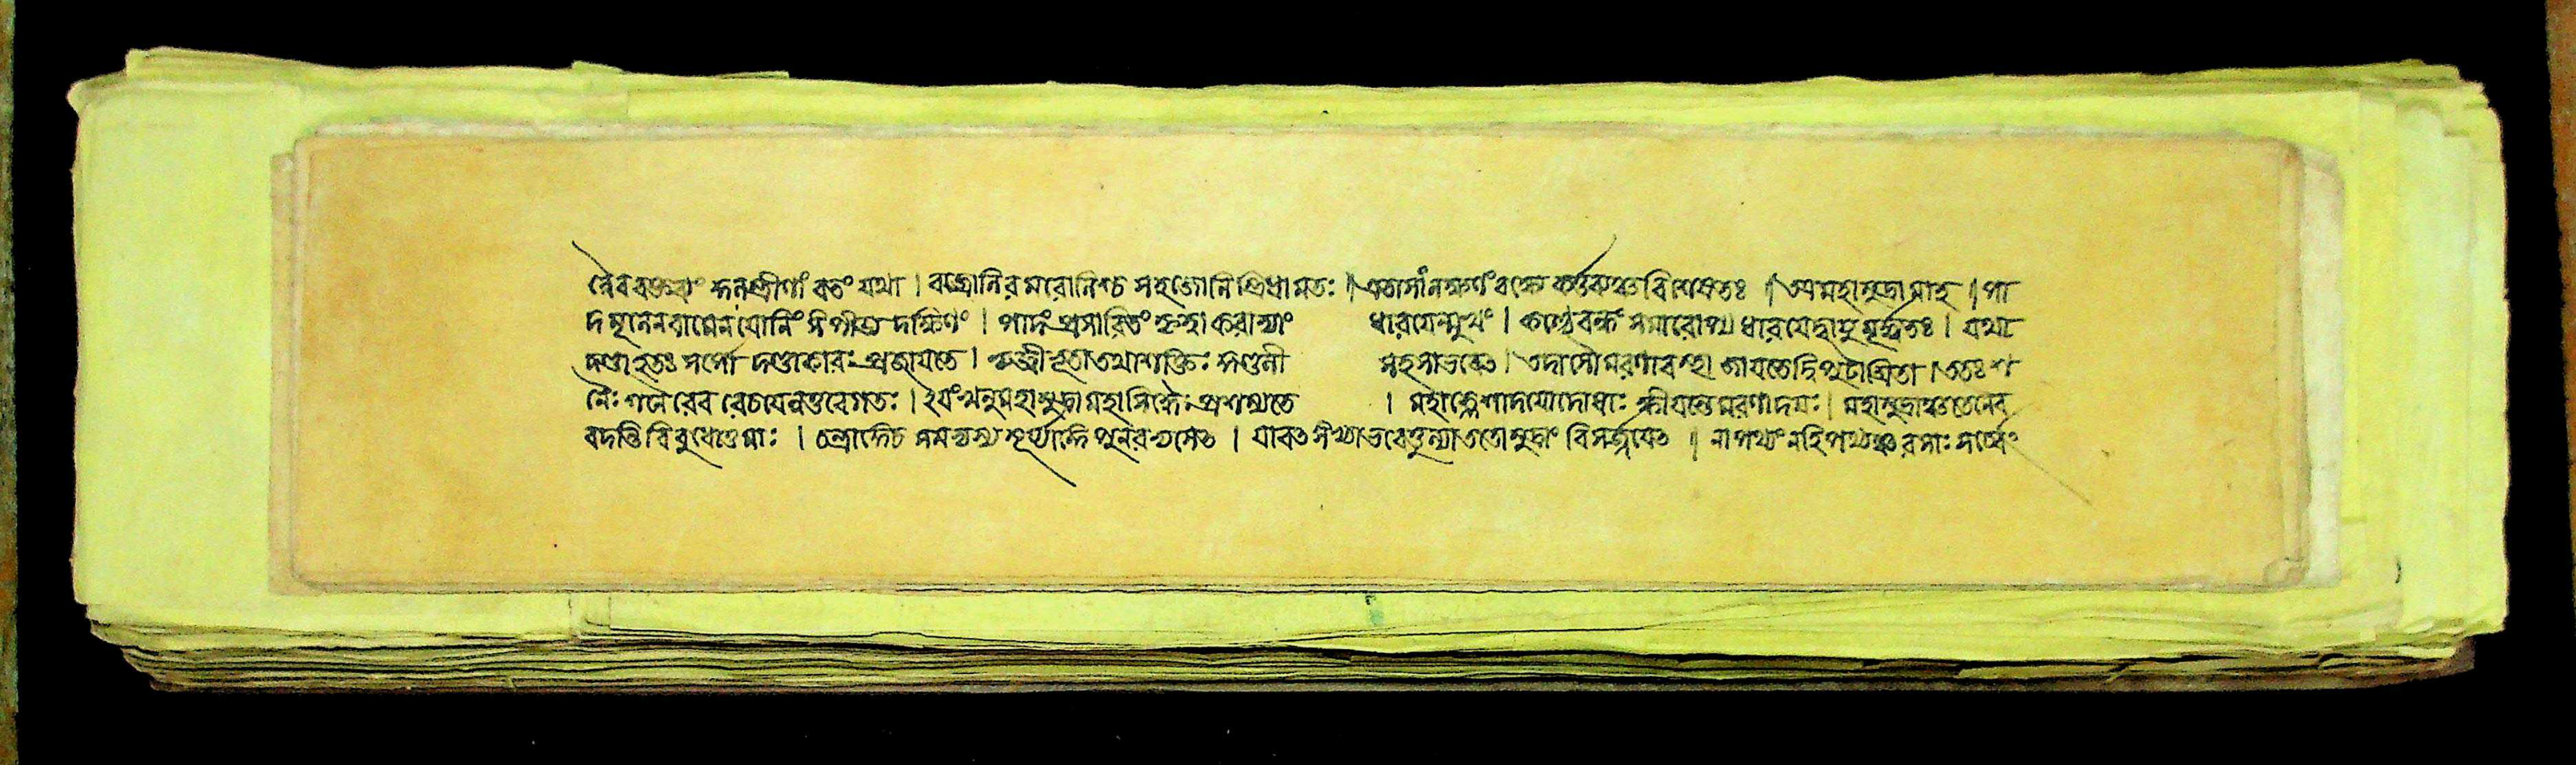 নৈব বক্তব্যং কুলস্ত্রীণাং বতং যথা । বজ্রোনিরমরোনিশ্চ সহজোনিস্ত্রিধামতঃ ॥ এতাসাং লক্ষণং বক্ষ্যে কর্ত্তব্যঞ্চ বিশেষতঃ ॥ মহামুদ্রামাহ ॥ পা
দমূলেন বামেন যোনিং সংপীড্য দক্ষিণং । পাদং প্রসারিতং কৃত্বা করাভ্যাং ধারয়েন্মুখং । কণ্ঠে বন্ধং সমারোপ্য ধারয়েদ্বায়ুমূর্দ্ধতঃ । যথা
দণ্ডাহতঃ সর্পো দণ্ডাকারঃ প্রজায়তে । ঋজ্বীভূতা তথা শক্তিঃ কুণ্ডলী সহসা ভবেৎ । তদাসৌ মরণাবস্থা জায়তে দ্বিপুটাশ্রিতা । ততঃ শ
নৈঃ শনৈরেব রেচয়েন্নতু বেগতঃ । ইয়ং খলু মহামুদ্রা মহাসিদ্ধৈঃ প্রশস্যতে । মহাক্লেশাদয়ো দোষাঃ ক্ষীয়ন্তে মরণাদয়ঃ । মহামুদ্রাঞ্চ তেনৈব
বদন্তি বিবুধোত্তমাঃ । চন্দ্রাঙ্গে চ সমভ্যস্য সূর্য্যাঙ্গে পুনরভ্যসেৎ । যাবৎ সংখ্যা ভবেত্তুল্যা ততো মুদ্রাং বিসর্জ্জয়েৎ ॥ নাপথ্যং নহি পথ্যঞ্চ রসাঃ সর্ব্বে